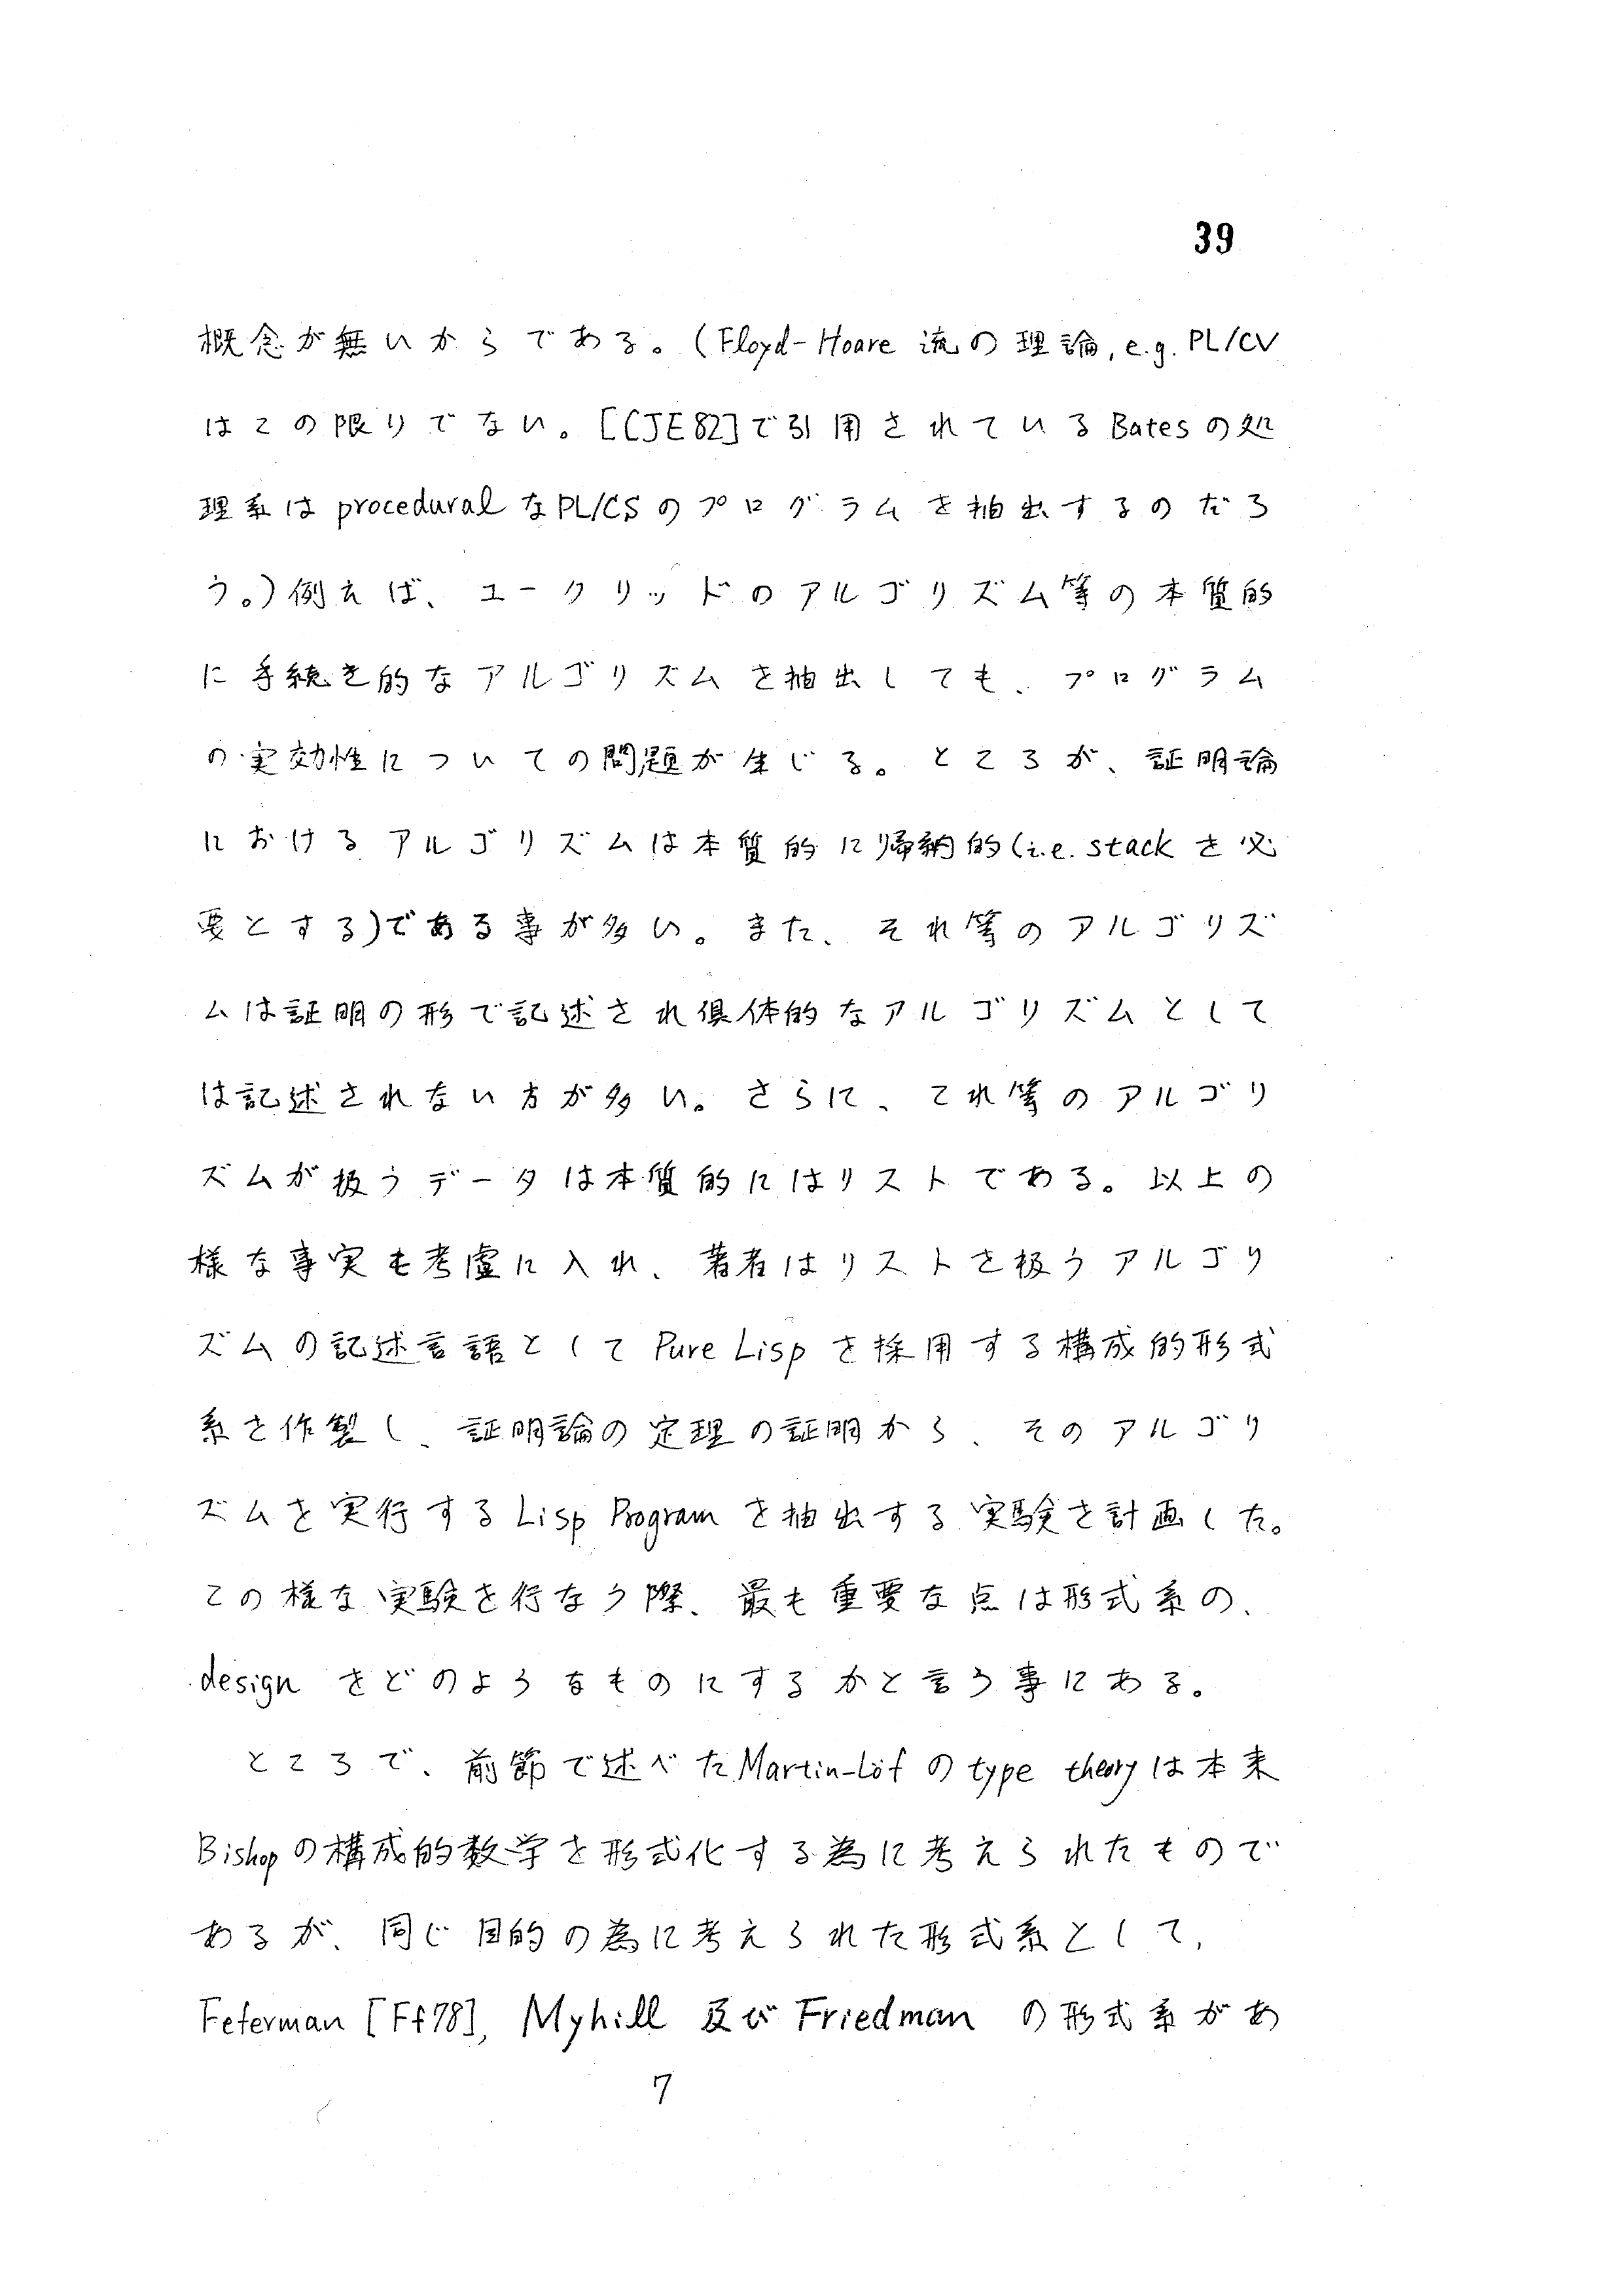 39
概念が無いからである。(Floyd-Hoare 流の理論, e.g. PL/CV
はこの限りでない。[CJE82]で引用されているBatesの処
理系はproceduralなPL/CSのプログラムを抽出するのだろ
う。)例えば、ユークリッドのアルゴリズム等の本質的
に手続き的なアルゴリズムを抽出しても、プログラム
の実効性についての問題が生じる。ところが、証明論
におけるアルゴリズムは本質的に帰納的(i.e. stackを必
要とする)である事が多い。また、それ等のアルゴリズ
ムは証明の形で記述され倶体的なアルゴリズムとして
は記述されない方が多い。さらに、これ等のアルゴリ
ズムが扱うデータは本質的にはリストである。以上の
様な事実も考慮に入れ、著者はリストを扱うアルゴリ
ズムの記述言語としてPure Lispを採用する構成的形式
系を作製し、証明論の定理の証明から、そのアルゴリ
ズムを実行するLisp Programを抽出する実験を計画した。
この様な実験を行なう際、最も重要な点は形式系の、
designをどのようなものにするかと言う事にある。
ところで、前節で述べたMartin-Löfのtype theoryは本来
Bishopの構成的数学を形式化する為に考えられたもので
あるが、同じ目的の為に考えられた形式系として、
Feferman [Ff78], Myhill 及び Friedman の形式系があ
7